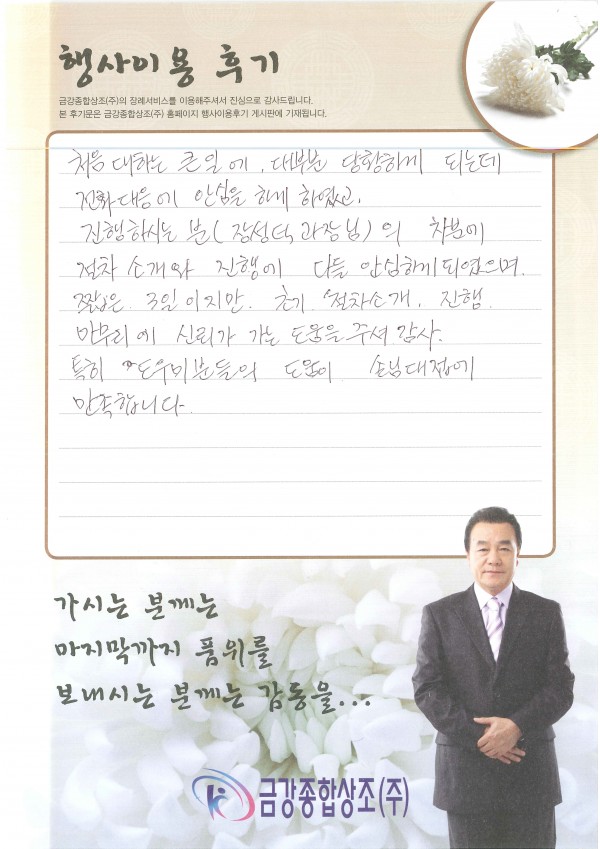 행사이용 후기
금강종합상조(주)의 장례서비스를 이용해주셔서 진심으로 감사드립니다.
본 후기문은 금강종합상조(주) 홈페이지 행사이용후기 게시판에 기재됩니다.
처음 대하는 큰일에, 대부분 당황하게 되는데
전화대응에 안심을 하게 하였고,
진행하시는 분(장성덕과장님)의 차분에
절차 소개와 진행에 다들 안심하게되었으며,
짧은 3일이지만, 초기 절차소개, 진행,
마무리에 신뢰가 가는 도움을주셔 감사.
특히 도우미분들의 도움이 손님대접에
만족합니다.
가시는 분께는
마지막까지 품위를
보내시는 분께는 감동을...
금강종합상조(주)